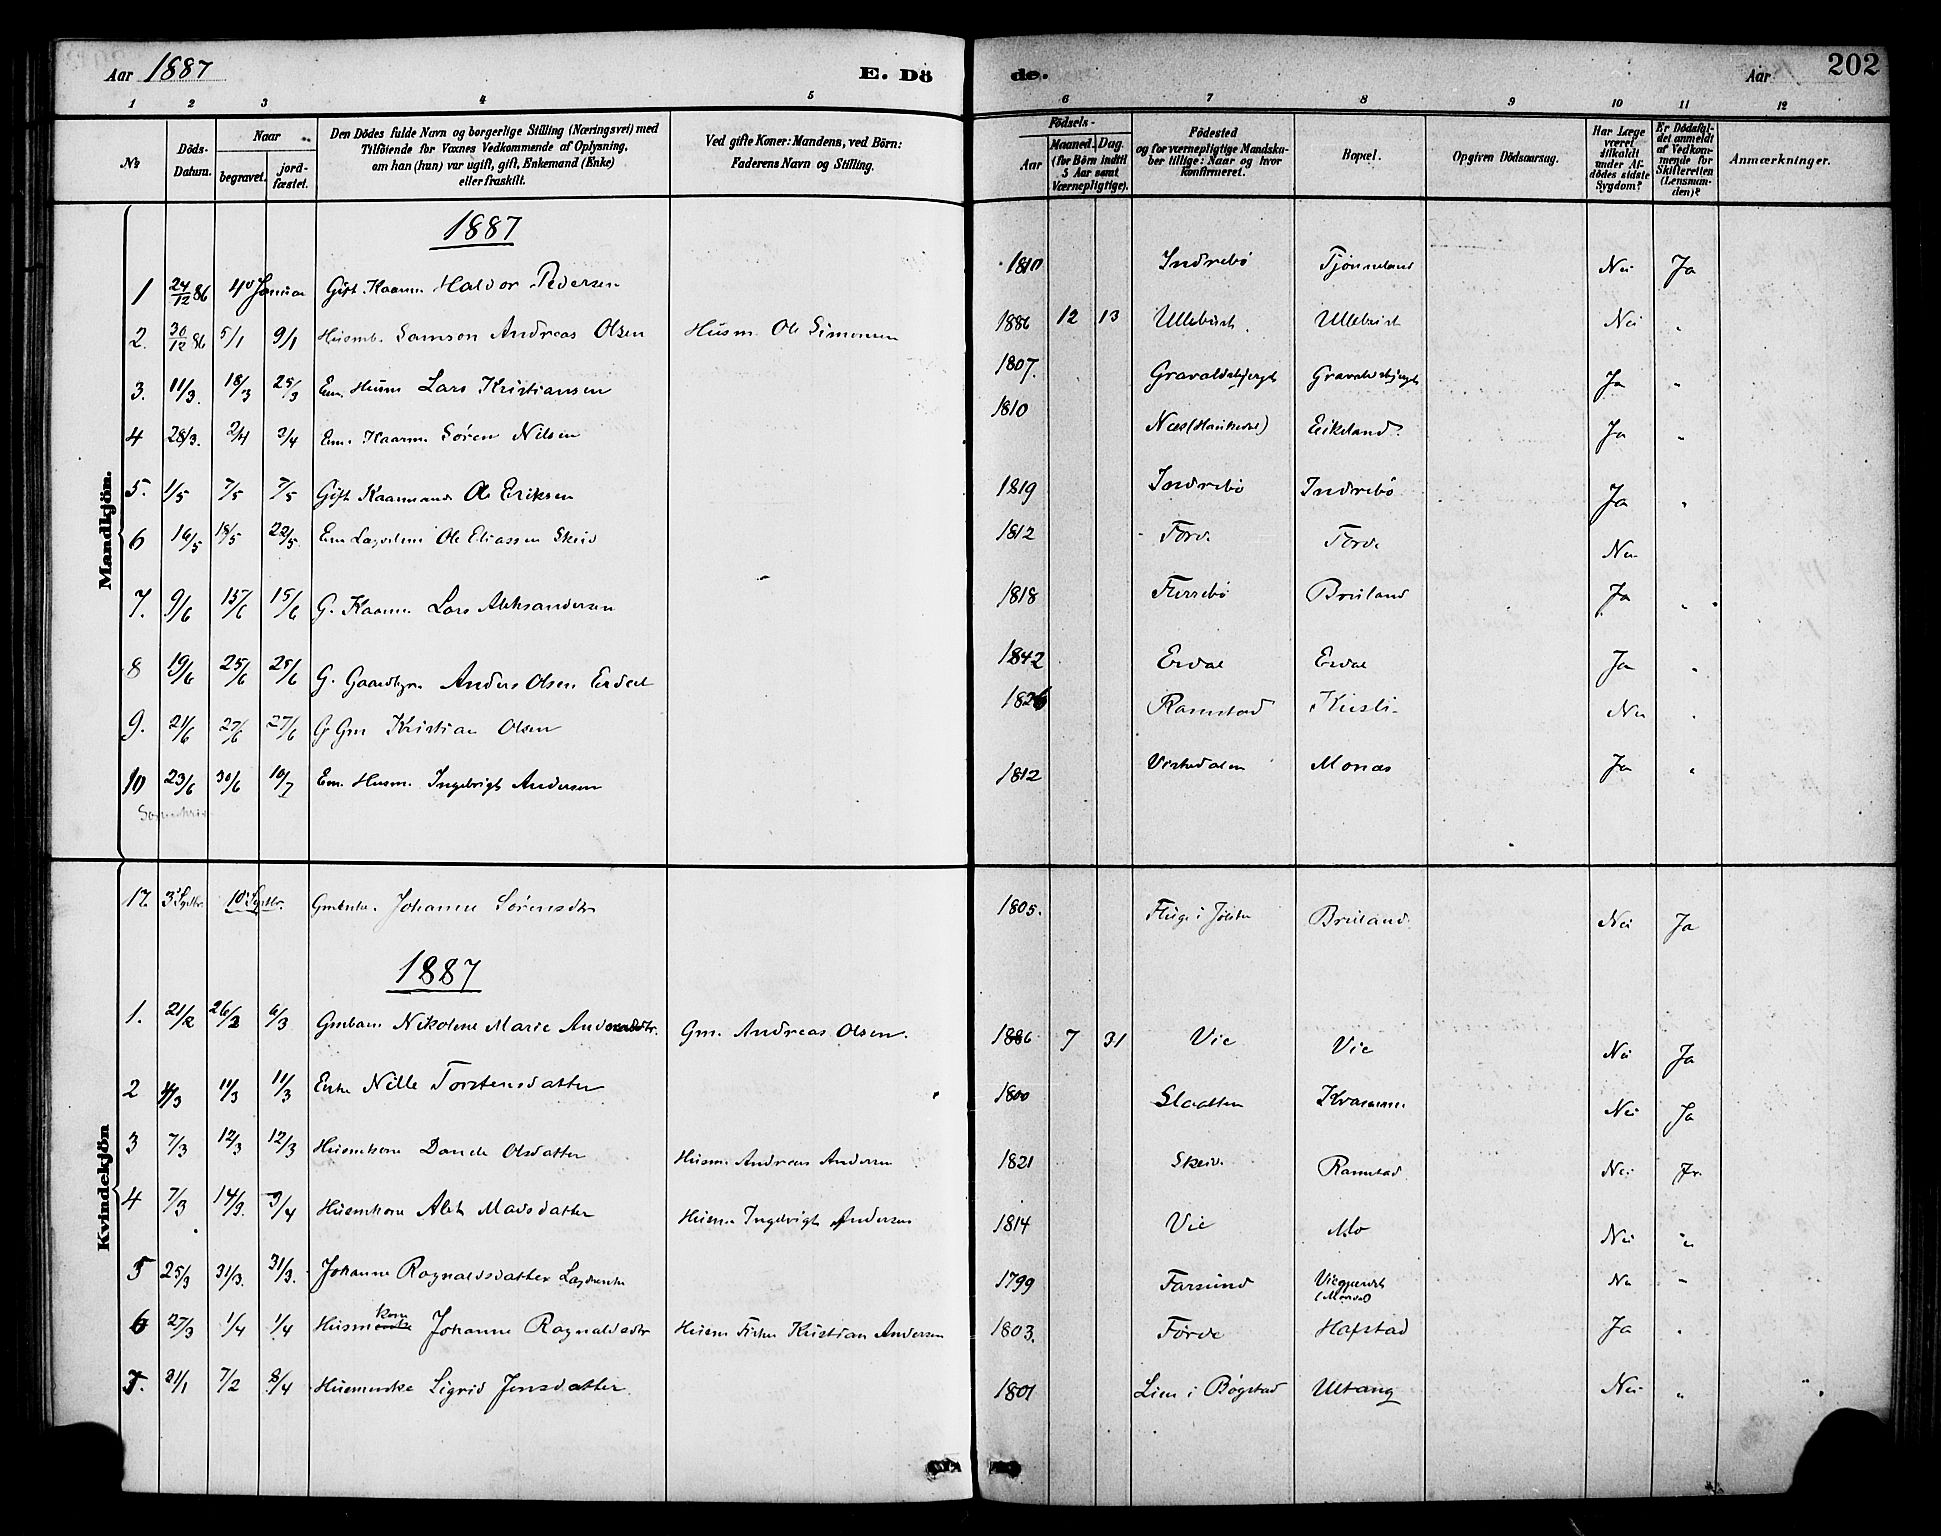 Aar 1887 E. Dö de. Aar 202
1 2 3 4 5 6 7 8 9 10 11 12
No
Döds-Datum.
Naar
begravet.
jord-fæstet.
Den Dödes fulde Navn og borgerlige Stilling (Næringsvei) med
Tilföiende for Voxnes Vedkommende af Oplysning,
om han (hun) var ugift, gift, Enkemand (Enke)
eller fraskilt.
Ved gifte Koner: Mandens, ved Börn:
Faderens Navn og Stilling.
Födsels-
Aar
Maaned. Dag.
(for Börn indtil
5 Aar samt
Værnepligtige).
Födested
og for værnepligtige Mandska-
ber tillige: Naar og hvor
konfirmeret.
Bopæl.
Opgiven Dödsaarsag.
Har Læge
været
tilkaldt
under Af-
dödes sidste
Sygdom?
Er Dödsfal-
det anmeldt
af Vedkom-
mende for
Skifteretten
(Lensman-
den)?
Anmærkninger.
Mandkjön.
1887
1 24/12 86 Januar Gift Kaarm. Haldor Pedersen 1810 Indrebö Tjönneland Nei Ja
2. 30/12 86 5/1 9/1 Husmb. Samson Andreas Olsen Husm. Ole Simonsen 1886 12 13 Ullebust. Ullebust Nei "
3. 11/3. 18/3 25/3 Em. Husm Lars Kristiansen 1807. Gravaldsbjergt Gravaldsbjergt Ja "
4 28/3. 2/4 3/4 Em. Kaarm. Sören Nilsen 1810 Næs (Haukedal) Eikeland. Ja "
5. 1/5 7/5 7/5 Gift Kaarmand Ole Eriksen 1819 Indrebö Indrebö Ja "
6 16/5 18/5 22/5. Em Ole Eliassen Skeid 1812 Förde Förde Nei
7. 9/6 15/6 15/6 G. Kaarm. Lars Aleksandersen 1818 Flerrebö Bruland Ja "
8 19/6 25/6 25/6 G. Gaardbgr. Anders Olsen Erdal 1842 Erdal Erdal Ja "
9. 21/6 27/6 27/6 G. Gm Kristian Olsen 1826 Ramstad Kusli Nei "
10 23/6 30/6 10/7 Em. Husm. Ingebrigt Andersen 1812 Virkedalen Monæs Ja "
17. 3' Septbr. 10' Septbr. Gmenke. Johanne Sörensdtr 1805. Fluge i Jölster Bruland. Nei Ja
Kvindekjön
1887
1. 21/2 26/2 6/3 Gmbarn Nikoline Marie Gm. Andreas Olsen. 1886 7 31 Vie Vie Nei Ja
2 4/3 11/3 11/3 Enke Nille Torstensdatter 1800 Slaatten Kvamme Nei Ja
3 7/3 12/3 12/3 Husmkone Dande Olsdatter Husm. Andreas Andersen 1821 Skeid. Ramstad. Nei Ja
4 7/3 14/3. 3/4 Husmkone Alet Madsdatter Husm. Ingebrigt Andersen 1814 Vie Mo Nei "
5 25/3 31/3. 31/3. Johanne Ragnaldsdatter 1799 Farsund Nei "
6 27/3 1/4 1/4 Husmkone Johanne Ragnaldsdtr Husm Kristian Andersen 1803. Förde Hafstad Ja "
7. 31/1 7/2 8/4 Husmenke Sigrid Jensdatter 1801 Lien i Bögstad Utang Nei "